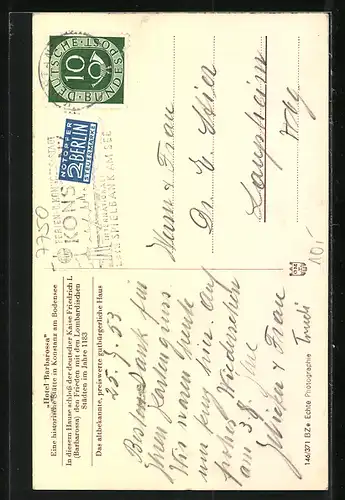 „Hotel Barbarossa“
Eine historische Stätte in Konstanz am Bodensee
In diesem Hause schloß der deutsche Kaiser Friedrich I.
(Barbarossa) den Frieden mit den Lombardischen
Städten im Jahre 1183
Das altbekannte, preiswerte gutbürgerliche Haus
25. 5. 53
Besten Dank für
Ihren Kartengruss.
Wir waren heute
um kurz hier. Auf
frohes Wiedersehen
am 3.
& Frau
Trudi
DEUTSCHE BUNDESPOST
10
NOTOPFER
2 BERLIN
STEUERMARKE
KONS
INTERNATIONALE
SPIELBANK AM SEE
7750
Herrn & Frau
Dr. E.
Laupheim
Wttbg
10,-
146/371 BZ • Echte Photographie